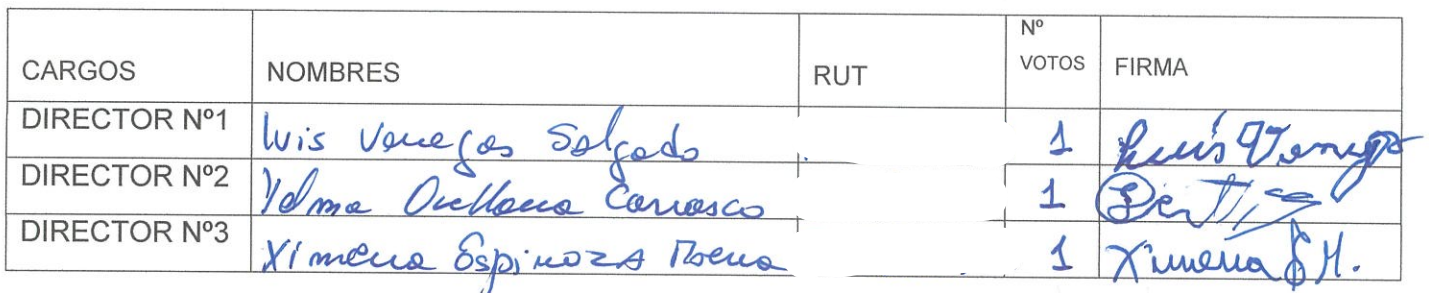 CARGOS NOMBRES RUT Nº VOTOS FIRMA
DIRECTOR Nº1 Luis Venegas Salgado 1 Luis Venegas
DIRECTOR Nº2 Ydma Orellana Carrasco 1
DIRECTOR Nº3 Ximena Espinoza 1 Ximena E M.